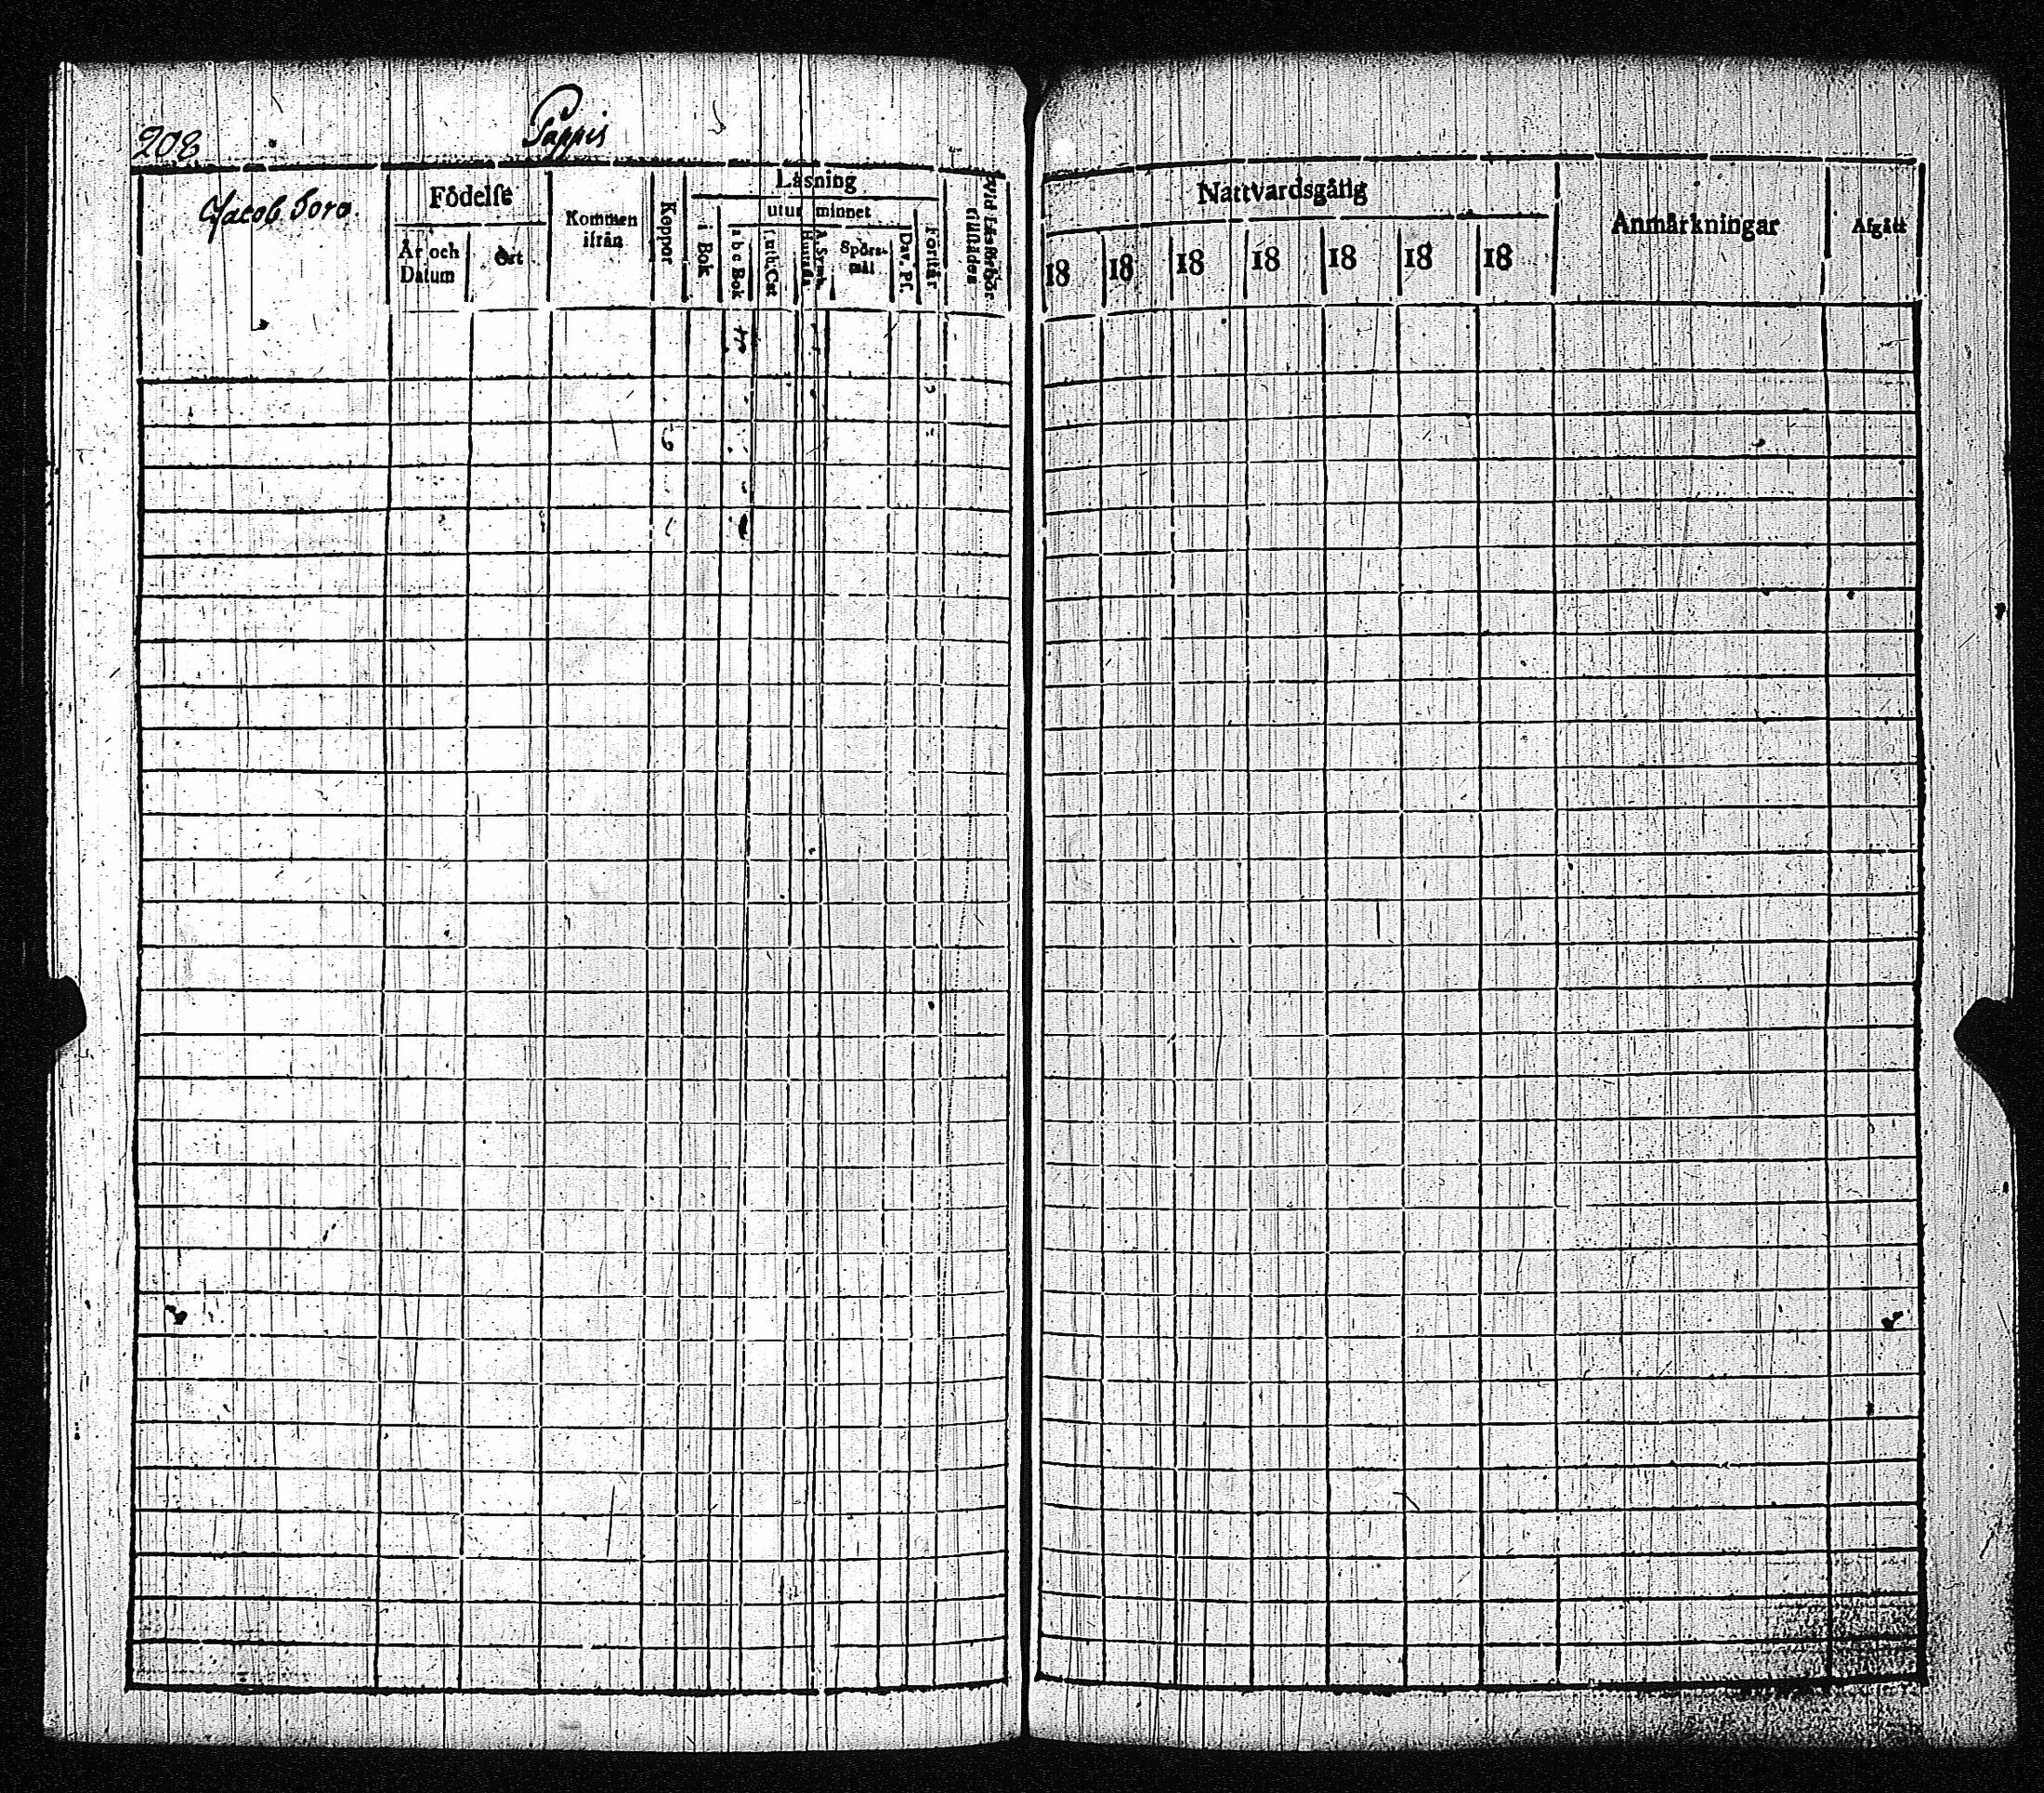 208
Pappis
Jacob Soro.
Födelse
År och Datum
Ort
Kommen ifrån
Koppor
Läsning
i Bok
utur minnet
a b c Bok
Luth. Cat
Hustafla
A. Symb.
Spörsmål
Dav. Ps.
Förstår
Vid Läsförhör tillstädes
Nattvardsgång
18
18
18
18
18
18
18
Anmärkningar
Afgått